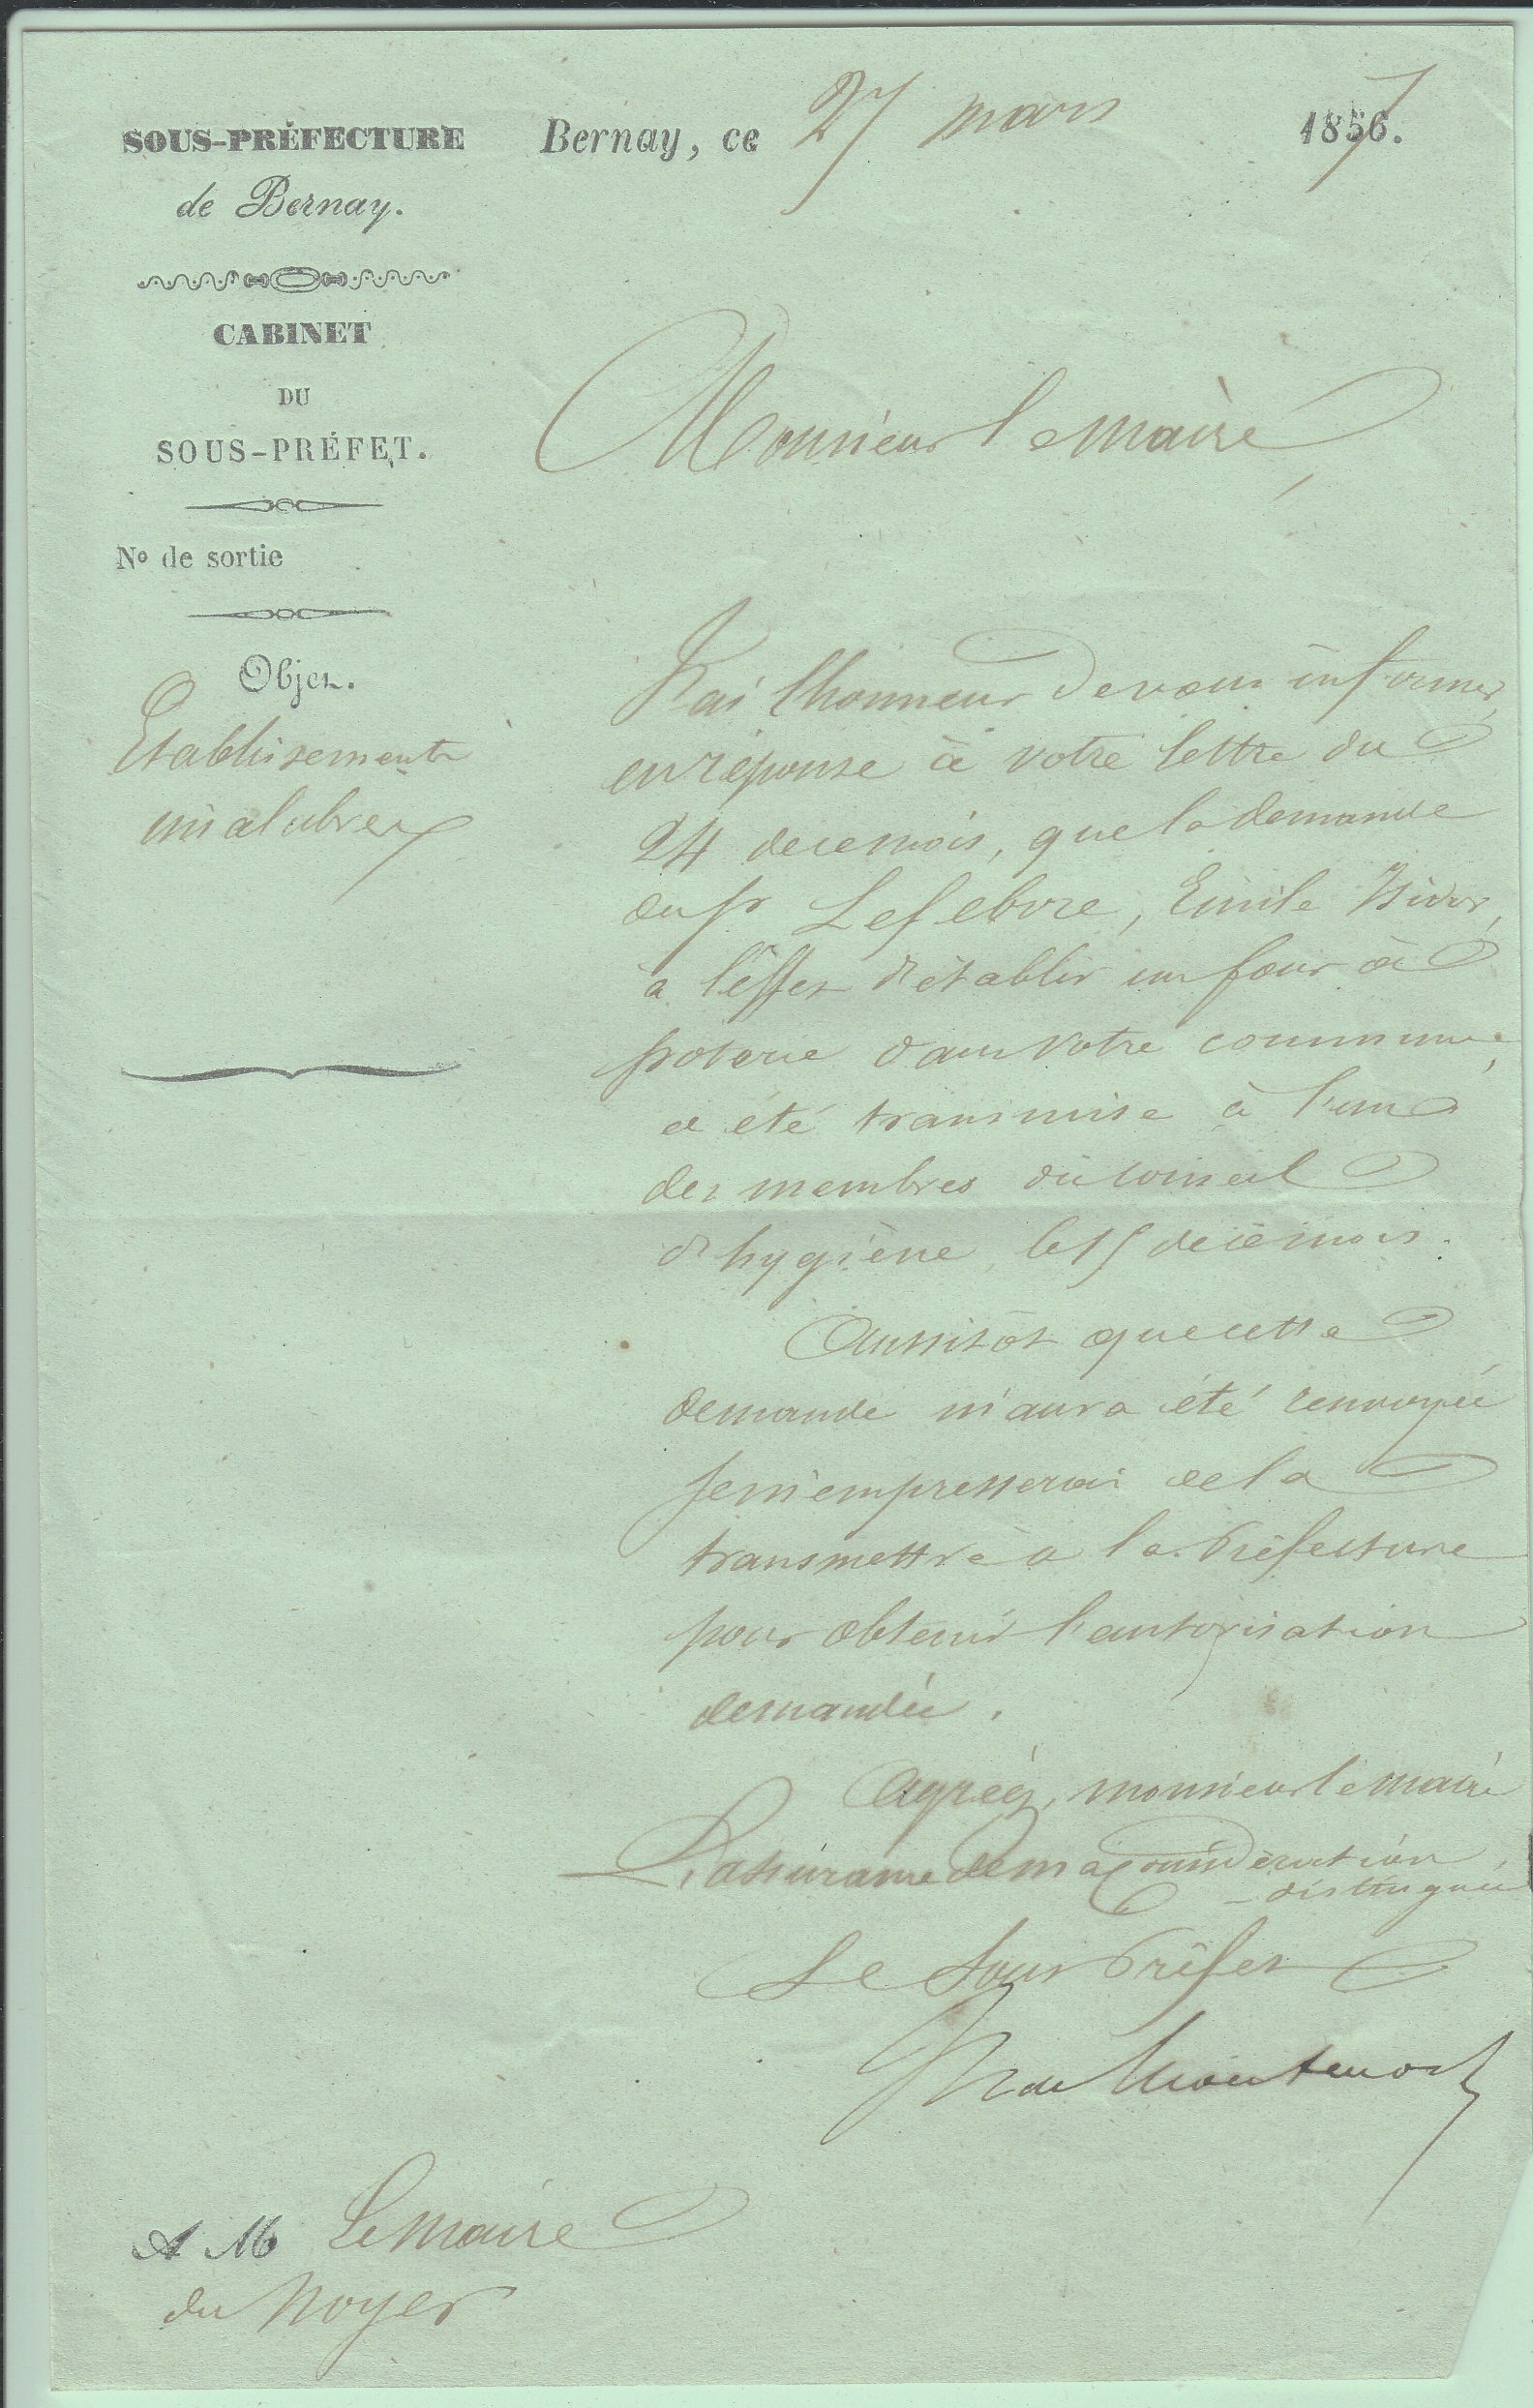 SOUS-PRÉFECTURE
de Bernay.
CABINET
DU
SOUS-PRÉFET.
N° de sortie
Objet.
Etablissements
insalubres
Bernay, ce 27 mars 1857.
Monsieur le maire,
J'ai l'honneur de vous informer,
en réponse à votre lettre du
24 de ce mois, que la demande
du sr Lefebvre, Emile Isidor,
à l'effet d'établir un four à
poterie dans votre commune,
a été transmise à l'un
des membres du conseil
d'hygiène, le 15 de ce mois.
Aussitôt que cette
demande m'aura été renvoyée
je m'empresserai de la
transmettre à la Préfecture
pour obtenir l'autorisation
demandée.
Agréez, monsieur le maire
L'assurance de ma considération
distinguée
Le Sous Préfet
de
A M Le Maire
du Noyer